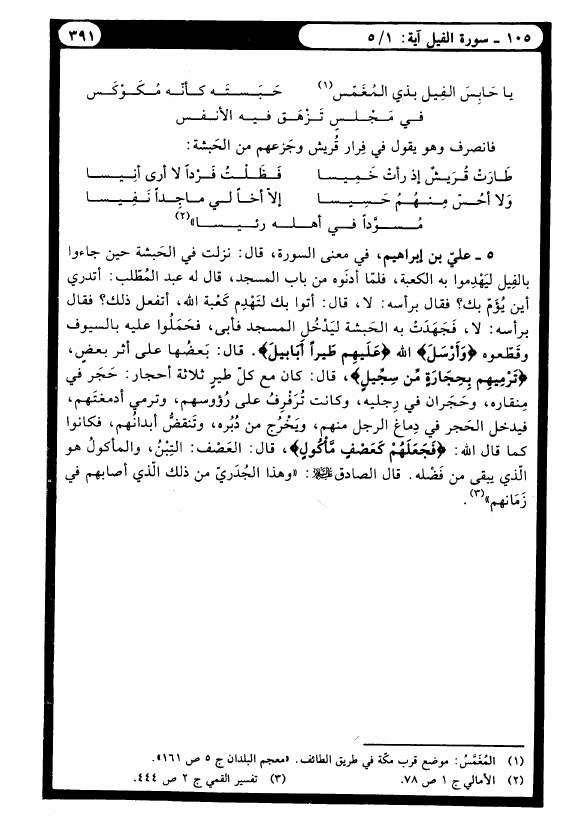 ١٠٥ ـ سورة الفيل آية: ١ / ٥
٣٩١
يا حَابِسَ الفِيل بذي المُغَمّس (١) حَبَستَه كأنّه مُكَوكَس
في مَجْلسٍ تَزْهَق فيه الأنفس
فانصرف وهو يقول في فِرار قُريش وجَزعهم من الحَبشة:
طَارَتْ قُرَيشٌ إذ رأتْ خَمِيسا فَظَلْتُ فَرْداً لا أرى أنيسا
وَلا أحُسّ مِنهُمُ حَسِيسا إلاّ أخاً لي ماجِداً نَفِيسا
مُسوَّداً في أهله رئيسا» (٢)
٥ ـ عليّ بن إبراهيم، في معنى السورة، قال: نزلت في الحَبشة حين جاءوا
بالفيل ليَهدِموا به الكعبة، فلمّا أدنَوه من باب المسجد، قال له عبد المُطّلب: أتدري
أين يُؤمّ بك؟ فقال برأسه: لا، قال: أتوا بك لتَهْدِم كَعْبة الله، أتفعل ذلك؟ فقال
برأسه: لا، فَجَهَدَتْ به الحَبشة ليَدْخُل المسجد فأبى، فحَمَلُوا عليه بالسيوف
وقَطّعوه ﴿وَأَرْسَلَ﴾ الله ﴿عَلَيهِم طَيراً أَبَابيلَ﴾. قال: بَعضُها على أثر بعض،
﴿تَرْمِيهِم بِحِجَارَةٍ مِّن سِجِّيلٍ﴾، قال: كان مع كلّ طيرٍ ثلاثة أحجار: حَجَر في
مِنقاره، وحَجَران في رِجليه، وكانت تُرَفرِفُ على رُؤوسهم، وترمي أدمغتَهم،
فيدخل الحَجر في دِماغ الرجل منهم، ويَخْرُج من دُبُره، وتَنقضُّ أبدانُهم، فكانوا
كما قال الله: ﴿فَجَعَلَهُمْ كَعَصْفٍ مَّأكُولٍ﴾، قال: العَصْف: التِبْنُ، والمأكولُ هو
الّذي يبقى من فَضْله. قال الصادق: «وهذا الجُدَريّ من ذلك الّذي أصابهم في
زَمَانهم» (٣).
(١) المُغَمَّسُ: موضع قرب مكّة في طريق الطائف. «معجم البلدان ج ٥ ص ١٦١».
(٢) الأمالي ج ١ ص ٧٨. (٣) تفسير القمي ج ٢ ص ٤٤٤.